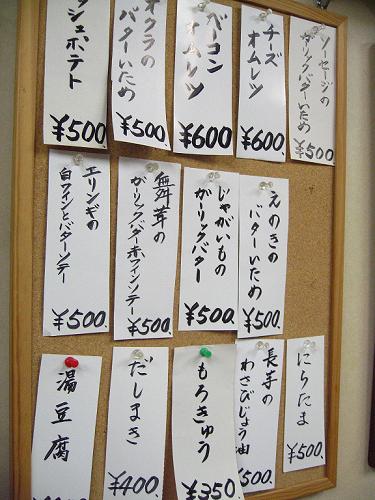 ッシュポテト
¥500
オクラの
バターいため
¥500.
ベーコン
オムレツ
¥600
チーズ
オムレツ
¥600
ソーセージの
ガーリックバターいため
¥500
エリンギの
白ワインとバターソテー
¥500.
舞茸の
ガーリックバター赤ワインソテー
¥500
じゃがいもの
ガーリックバター
¥500
えのきの
バターいため
¥500.
湯豆腐
だしまき
¥400
もろきゅう
¥350
長芋の
わさびじょう油
¥500
にらたま
¥500.